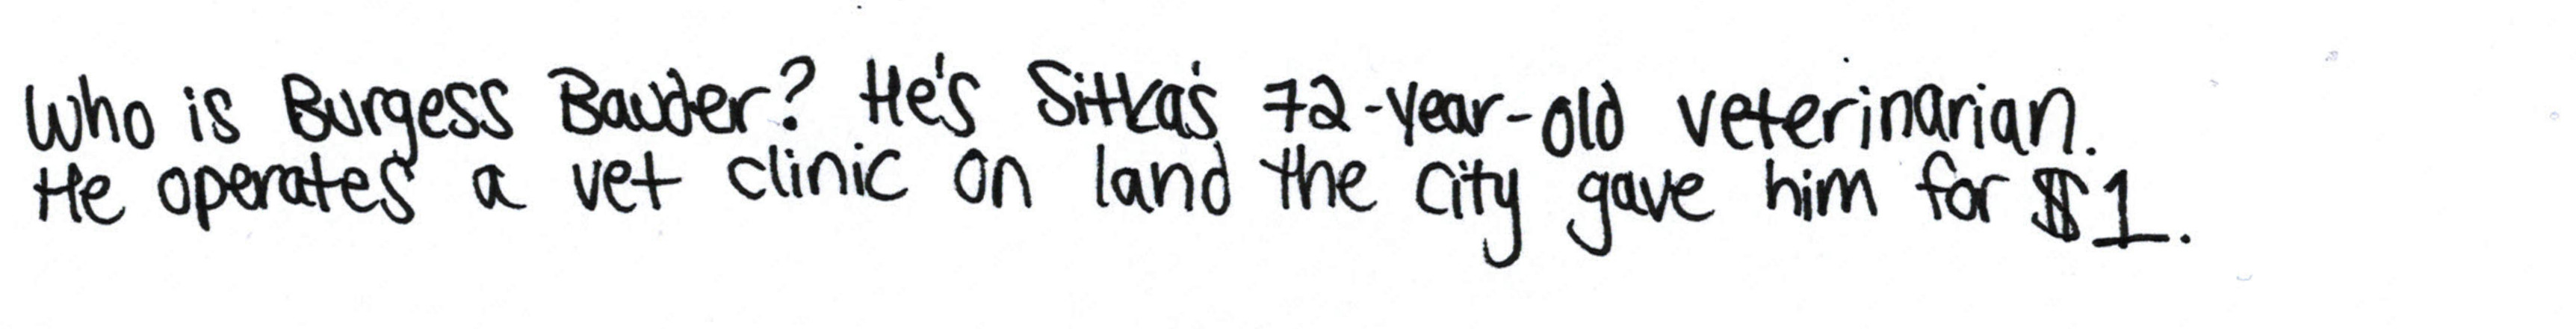 Who is Burgess Bauder? He's Sitka's 72-year-old veterinarian.
He operates a vet clinic on land the city gave him for $1.